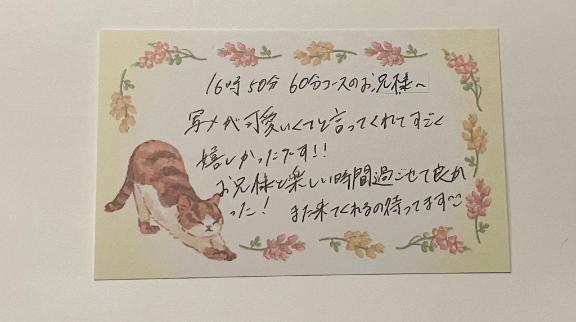 16時50分 60分コースのお兄様へ
写メが可愛いくてと言ってくれてすごく
嬉しかったです!!
お兄様と楽しい時間過ごせて良か
った! また来てくれるの待ってます